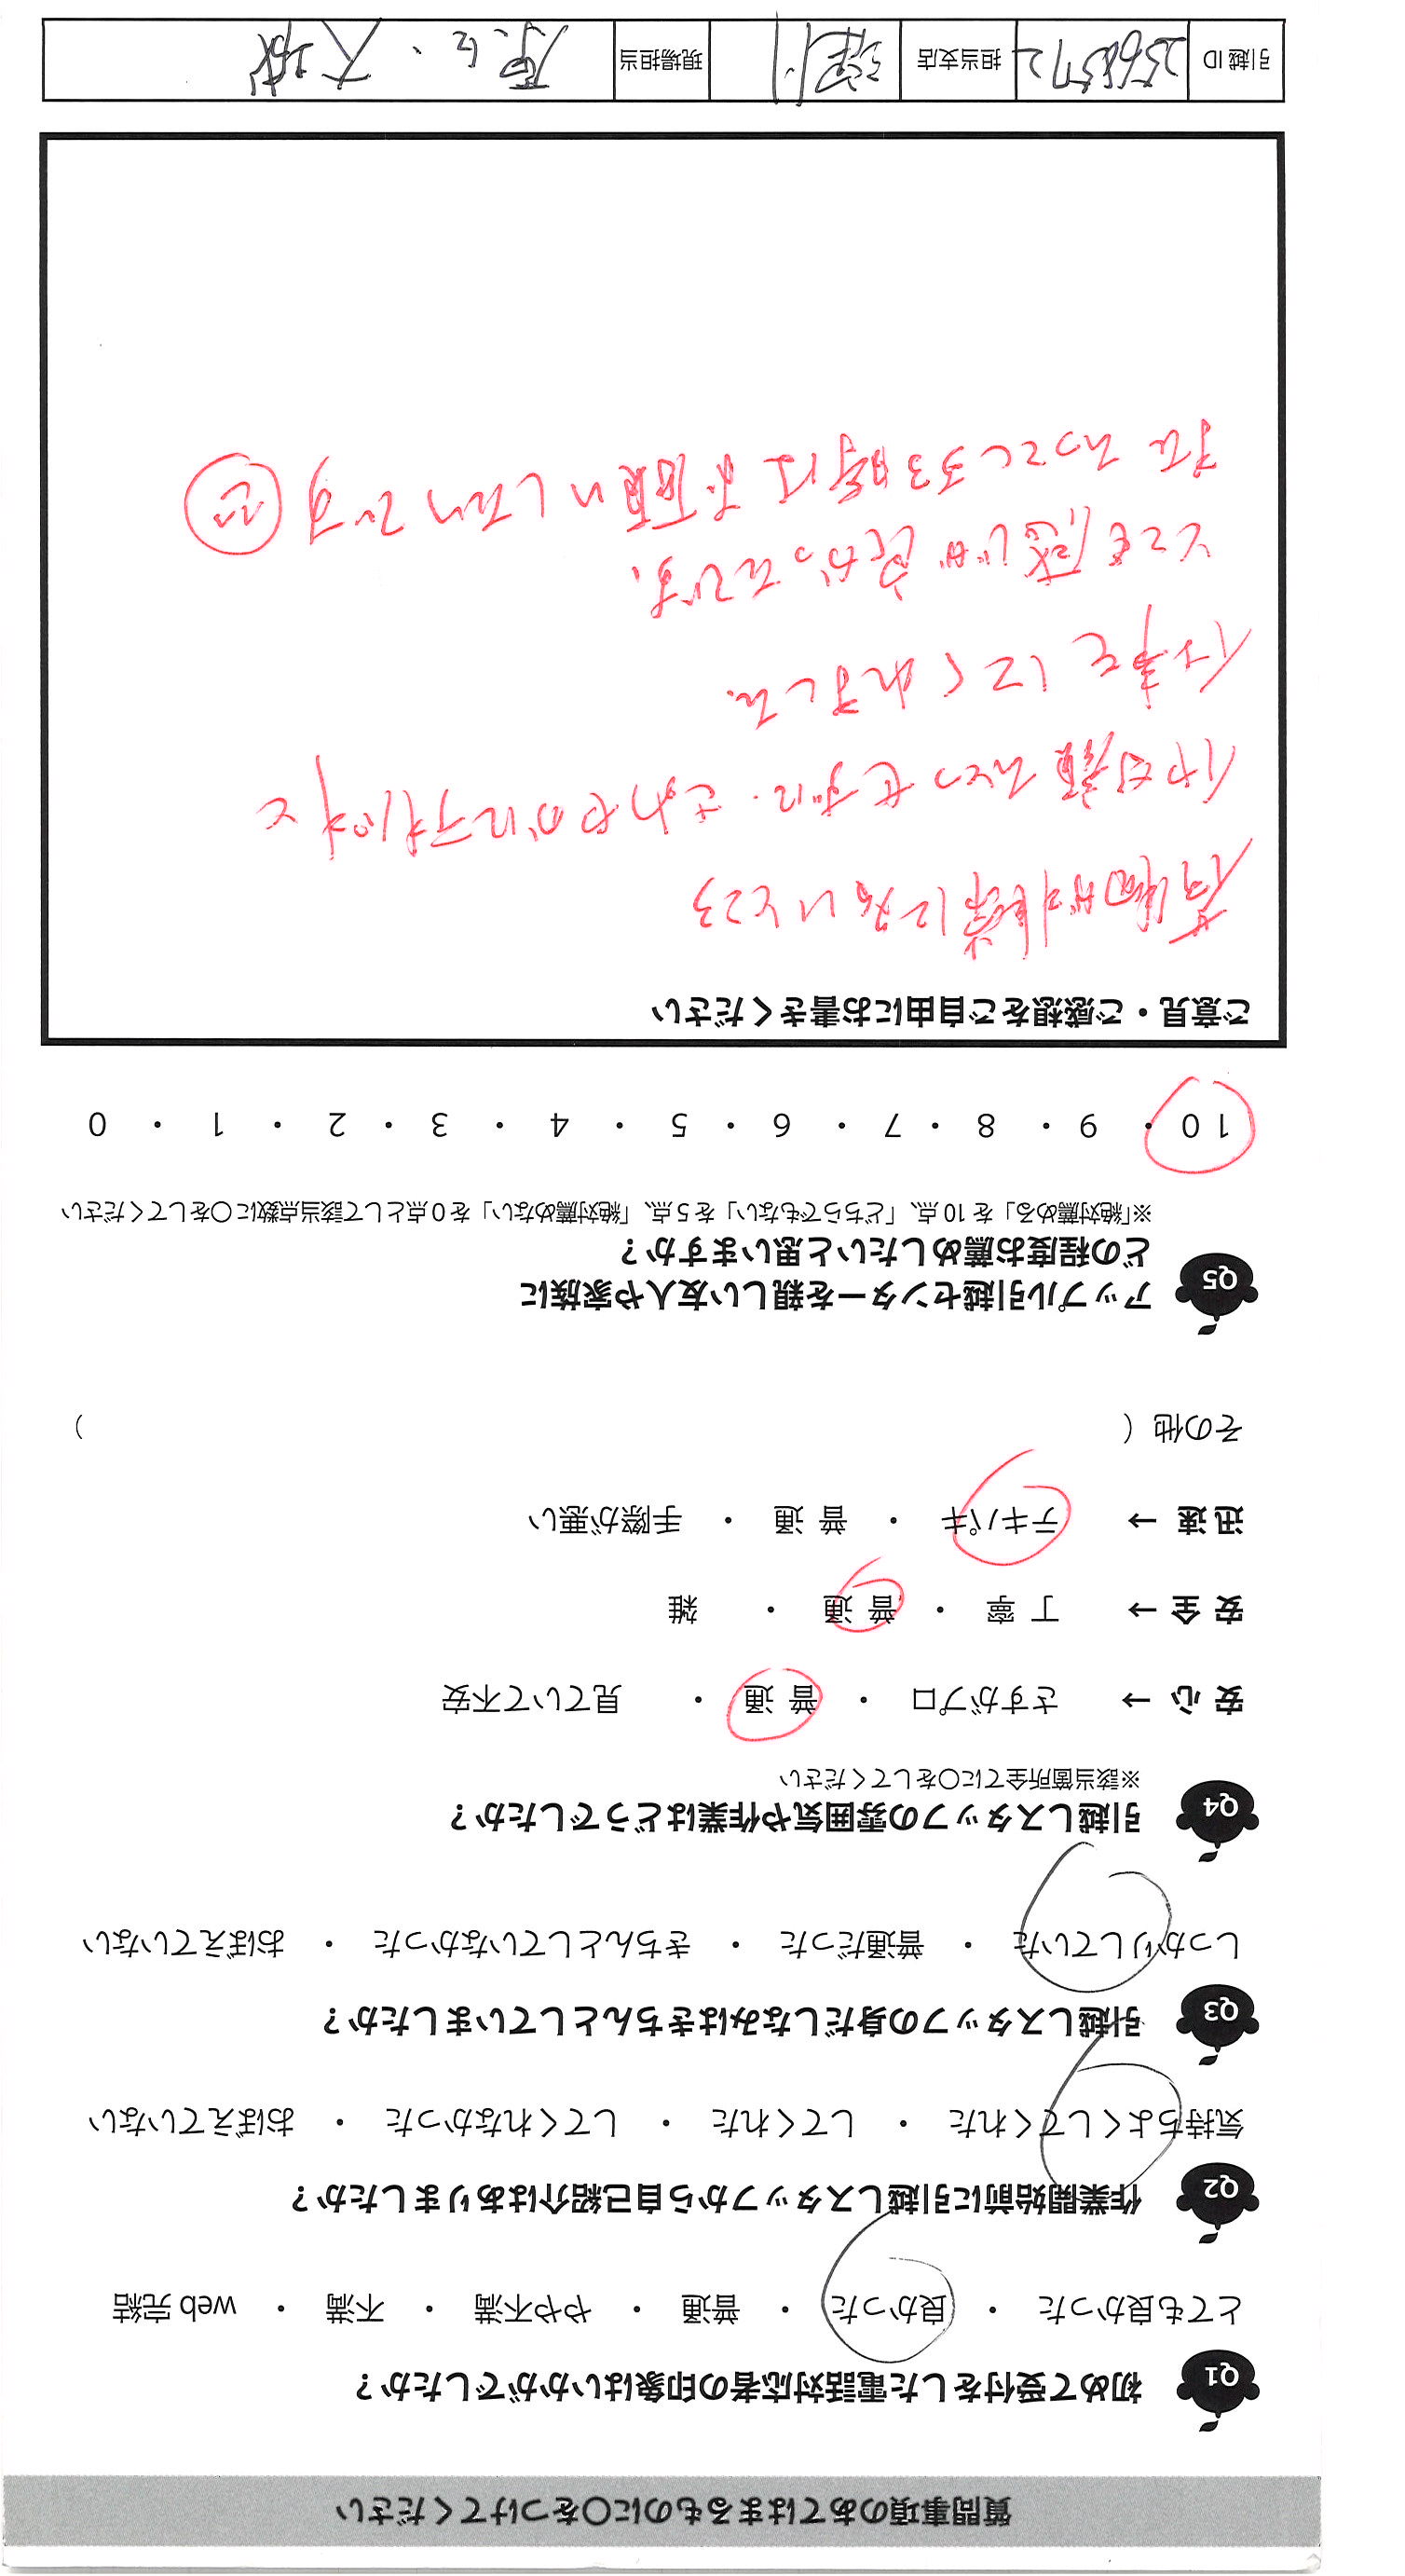 質問事項のあてはまるものに○をつけてください
Q1 初めて受付をした電話対応者の印象はいかがでしたか？
とても良かった ・ 良かった ・ 普通 ・ やや不満 ・ 不満 ・ web 完結
Q2 作業開始前に引越しスタッフから自己紹介はありましたか？
気持ちよくしてくれた ・ してくれた ・ してくれなかった ・ おぼえていない
Q3 引越しスタッフの身だしなみはきちんとしていましたか？
しっかりしていた ・ 普通だった ・ きちんとしていなかった ・ おぼえていない
Q4 引越しスタッフの雰囲気や作業はどうでしたか？
※該当箇所全てに○をしてください
安 心 → さすがプロ ・ 普 通 ・ 見ていて不安
安 全 → 丁 寧 ・ 普 通 ・ 雑
迅 速 → テキパキ ・ 普 通 ・ 手際が悪い
その他 （ ）
Q5 アップル引越センターを親しい友人や家族に
どの程度お薦めしたいと思いますか？
※「絶対薦める」を 10 点、「どちらでもない」を 5 点、「絶対薦めない」を 0 点として該当点数に○をしてください
10 ・ 9 ・ 8 ・ 7 ・ 6 ・ 5 ・ 4 ・ 3 ・ 2 ・ 1 ・ 0
ご意見・ご感想をご自由にお書きください
荷物が大変に多いところ
イヤな顔ひとつせずに、さわやかにテキパキと
仕事をしてくれました。
とても感じが良かったです。
またひっこする時はお願いしたいです
引越 ID 2568572 担当支店 現場担当 ・大城